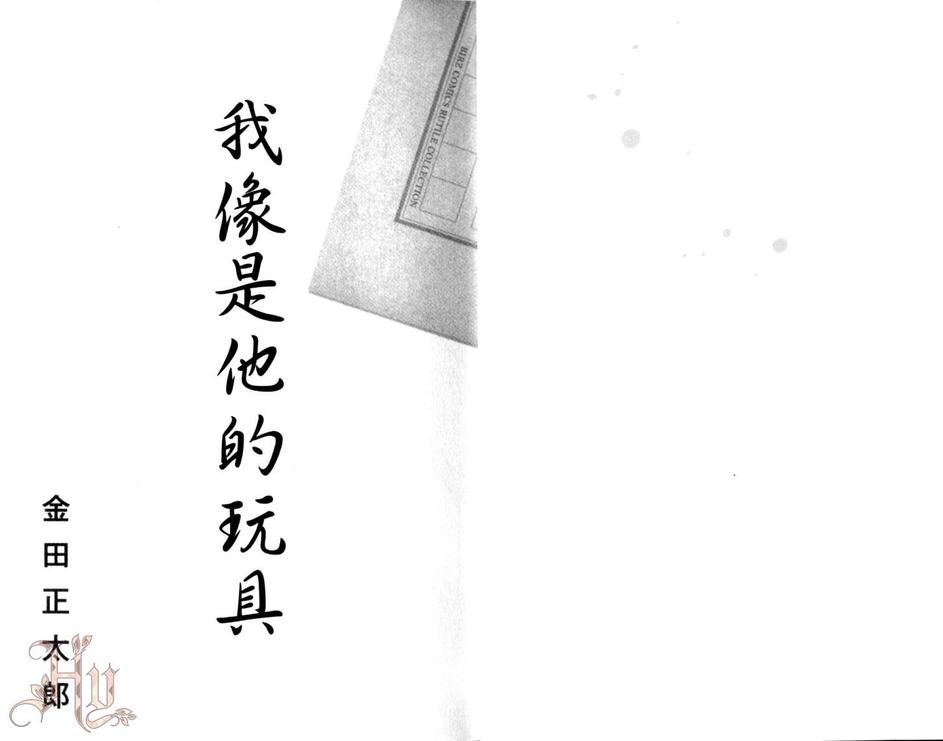 BIRZ COMICS RUTILE COLLECTION
我像是他的玩具
金田正太郎
Hy